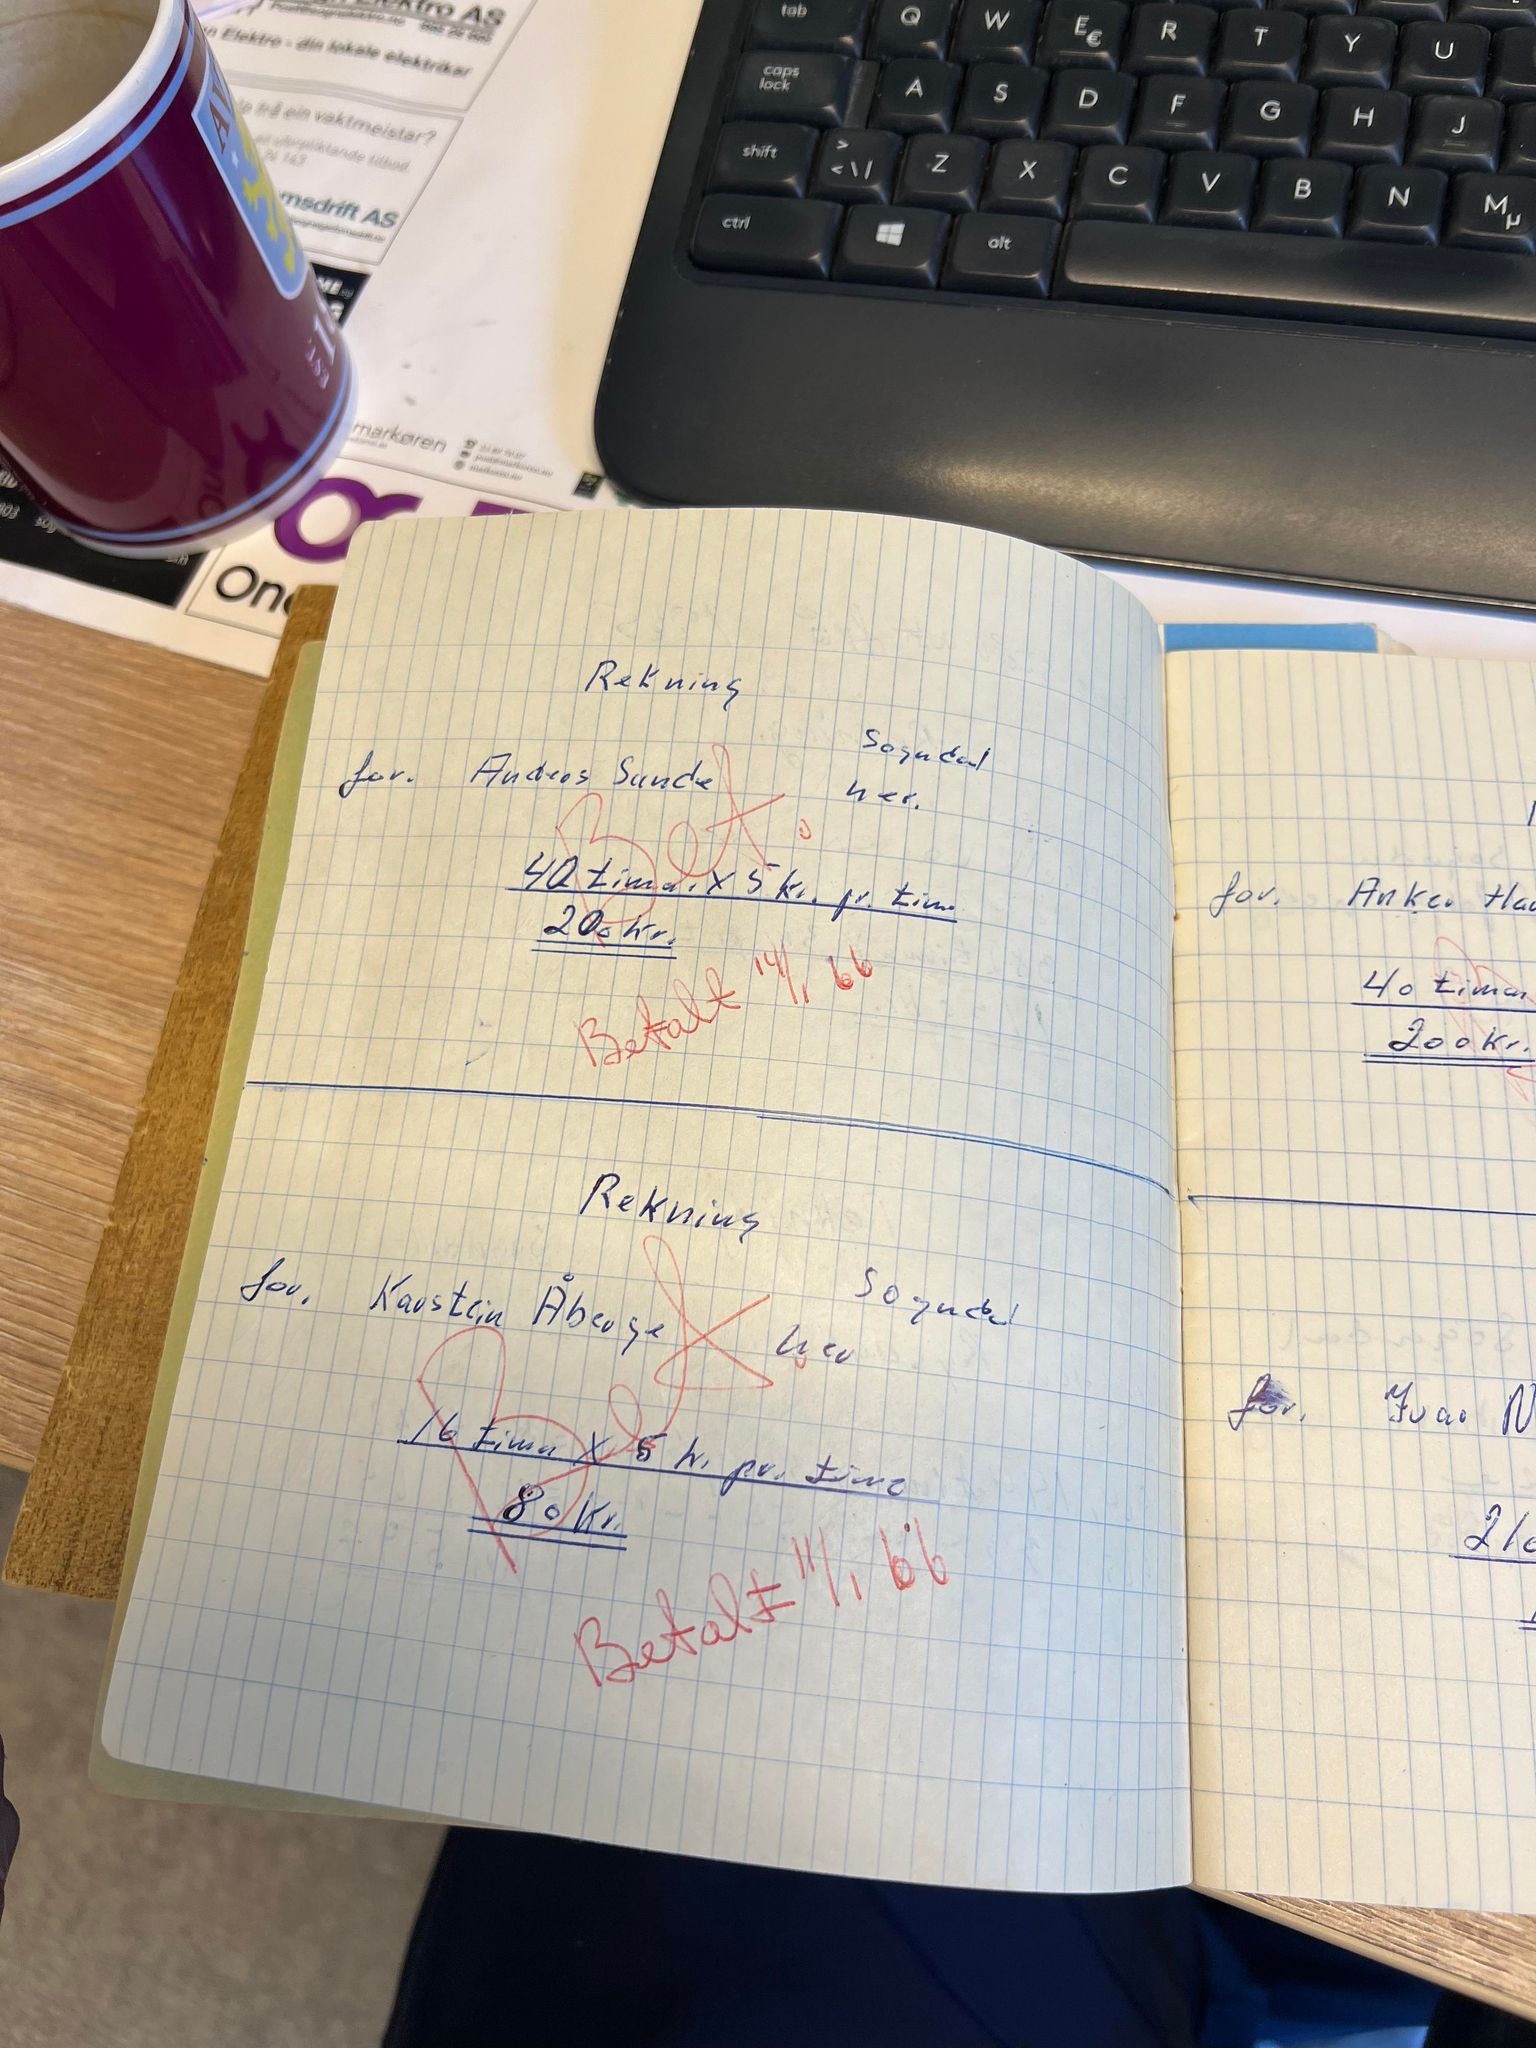 Elektro AS
n Elektro - din lokale elektrikar
trå ein vaktmeistar?
msdrift AS
EST.
markøren
One
tab Q W E € R T Y U
caps lock A S D F G H J
shift > < \ | Z X C V B N M µ
ctrl alt
Rekning
Sogndal
for. Andros Sunde
her.
Bet.
40 timar X 5 kr. pr. time
200 kr.
Betalt 14/1 66
Rekning
Sogndal
for. Karstein Åberge
her
Bet.
16 timar X 5 kr. pr. time
80 kr.
Betalt 11/1 66
for.
40 timar
200 kr.
for. Ivar N